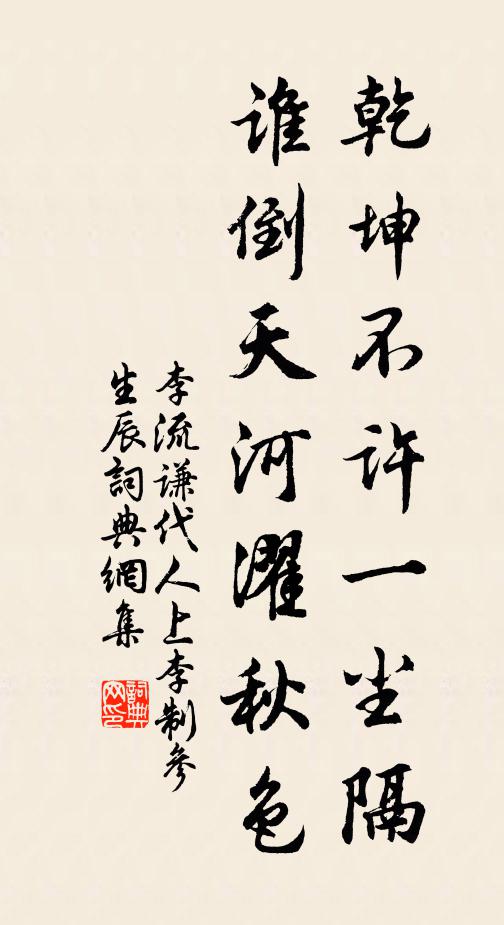 乾坤不许一尘隔
谁倒天河濯秋色
李流谦代人上李制参
生辰詞典網集
詞典网印